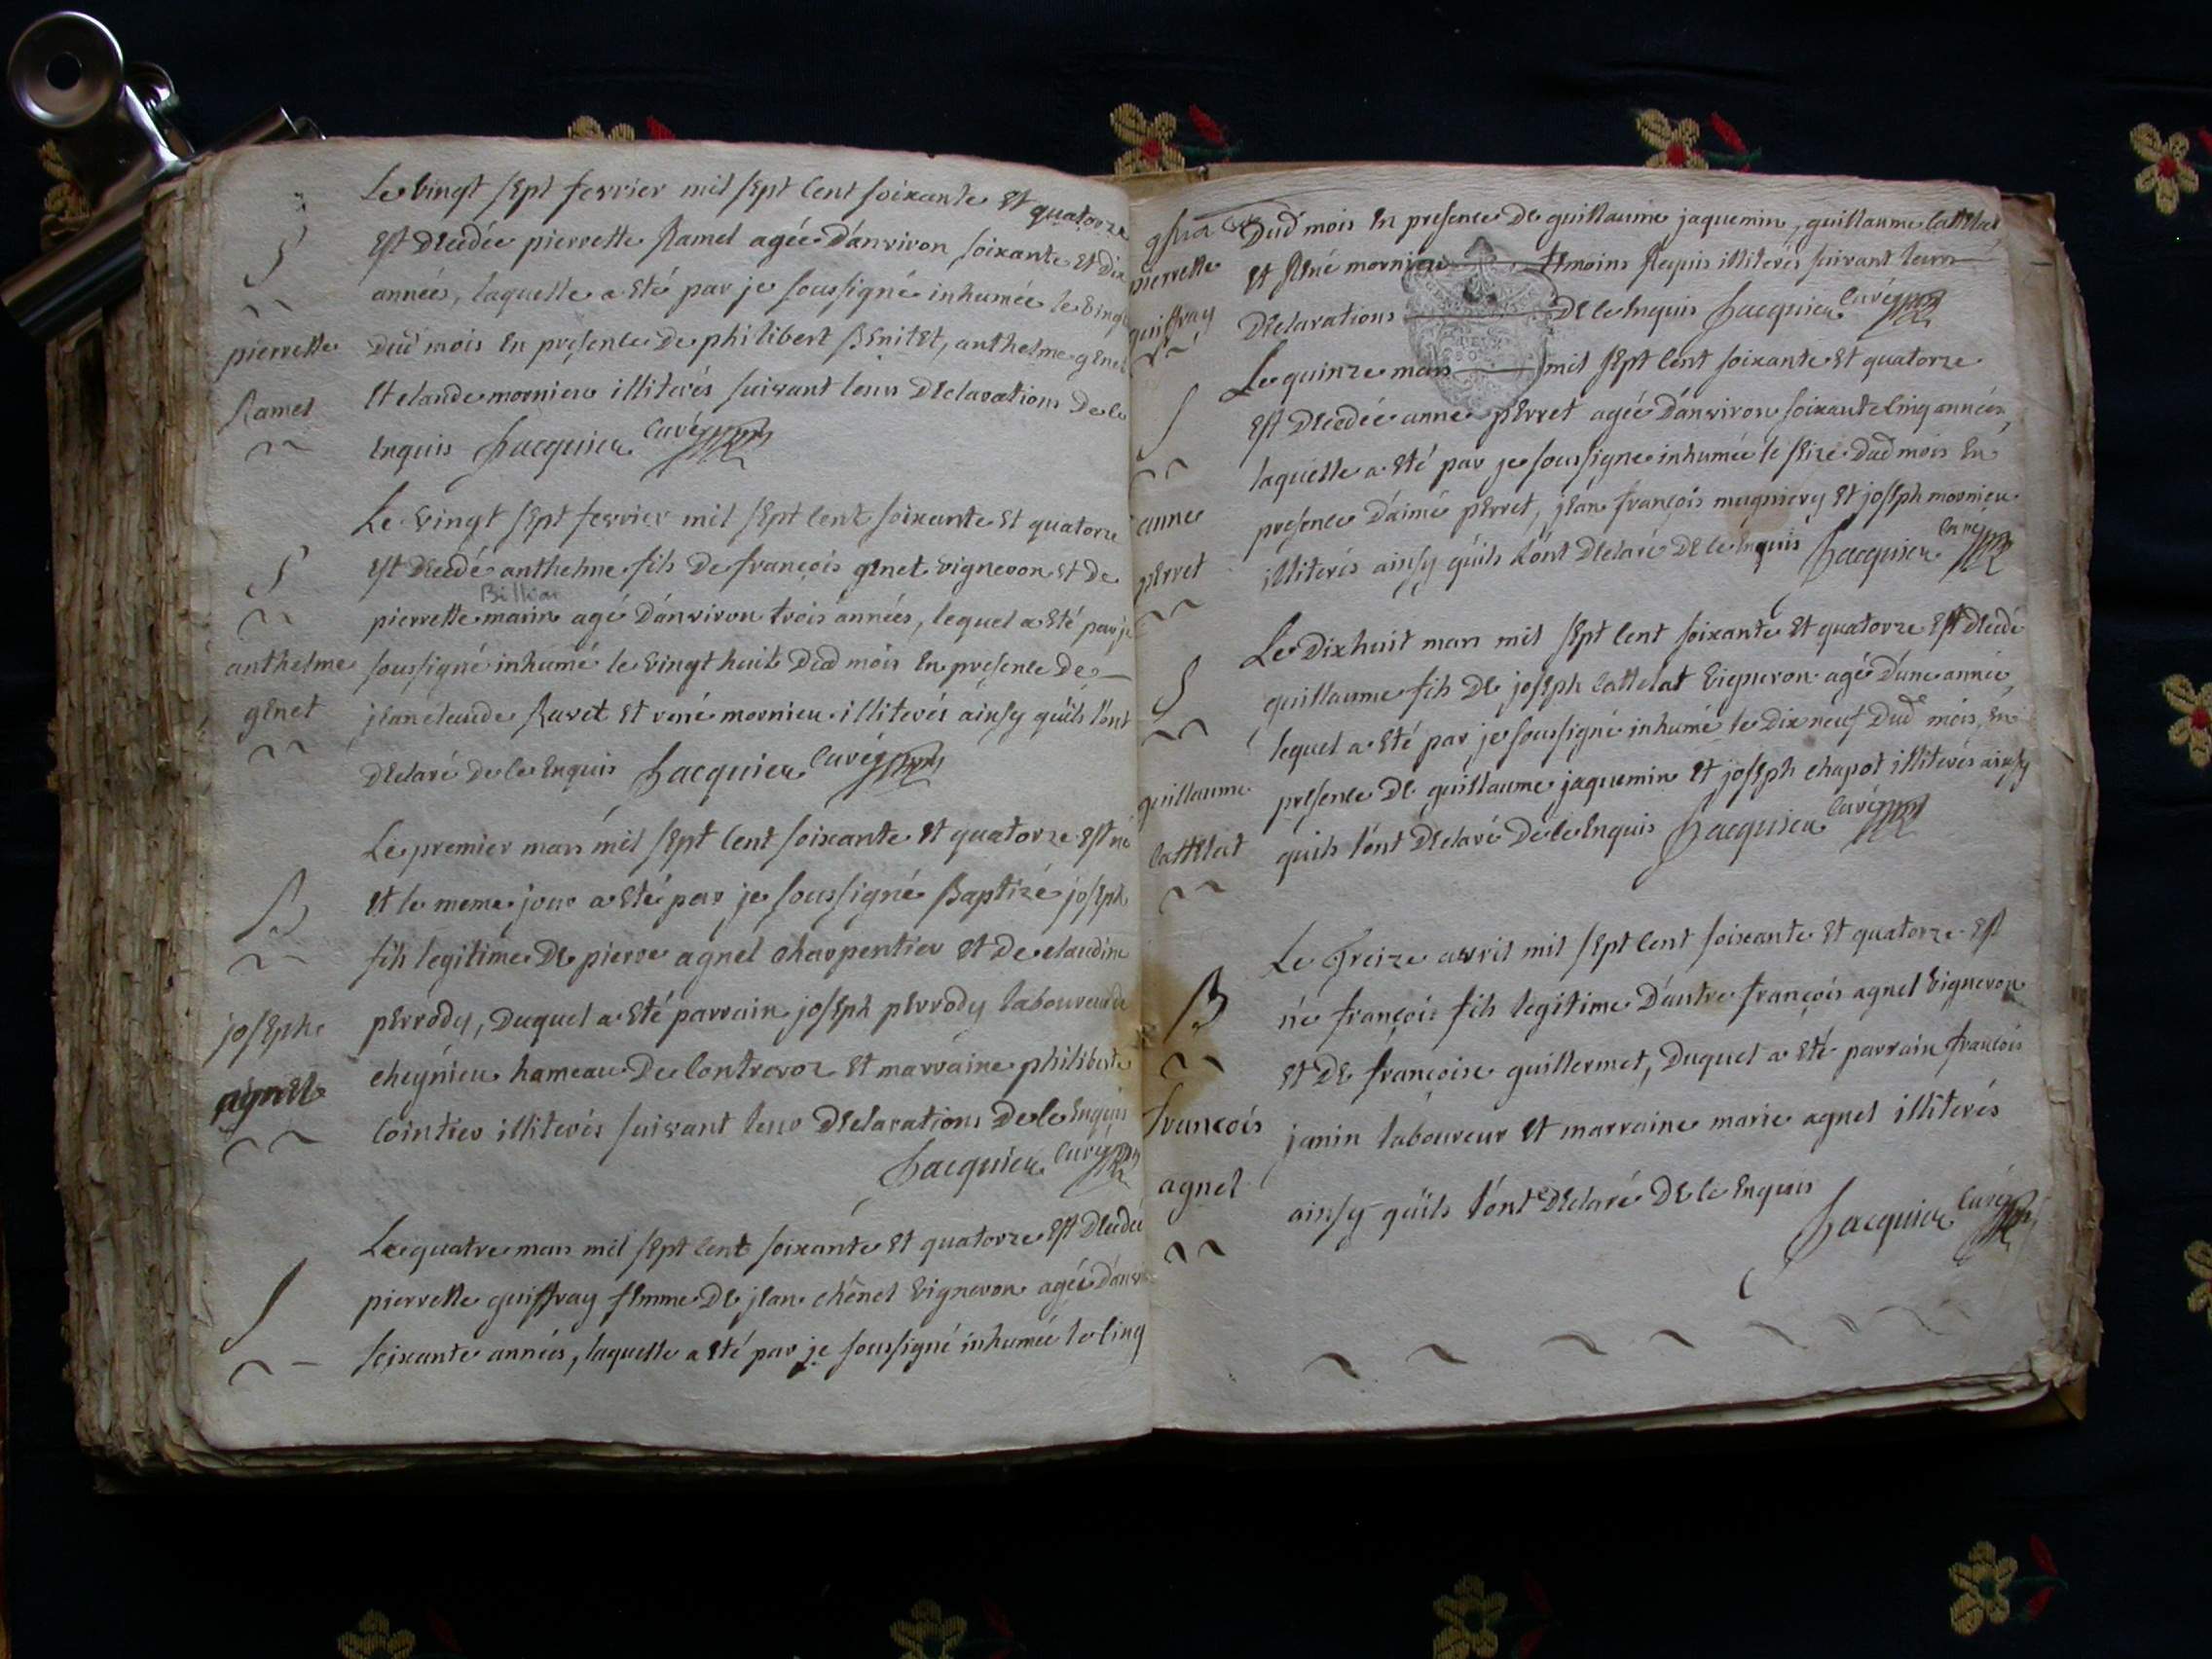 Le vingt sept fevrier mil sept cent soixante et quatorze
S est decedée pierrette Ramel agée d'anviron soixante et dix
années, laquelle a eté par je soussigné inhumée le vingt
pierrette dud mois en presence de philibert Benitet, anthelme genet
Ramel et claude mornieu illiterés suivant leurs declarations de ce
enquis Jacquier curé
Le vingt sept fevrier mil sept cent soixante et quatorze
S est decedé anthelme fils de françois genet vigneron et de
Billion
pierrette marin agé d'anviron trois années, lequel a eté par je
anthelme soussigné inhumé le vingt huit dud mois en presence de
genet jean claude Ravet et rené mornieu illiterés ainsy qu'ils l'ont
declaré de ce enquis Jacquier curé
Le premier mars mil sept cent soixante et quatorze est né
B et le meme jour a eté par je soussigné Baptizé joseph
fils legitime de pierre agnel charpentier et de claudine
josephe perrody, duquel a eté parrain joseph perrody laboureur de
agnel cheynieu hameau de contrevoz et marraine philiberte
cointier illiterés suivant leur declarations de ce enquis
Jacquier curé
Le quatre mars mil sept cent soixante et quatorze est decedée
S pierrette guiffray femme de jean chênel vigneron agée d'anvi
soixante années, laquelle a eté par je soussigné inhumée le cinq
dud mois en presence de guillaume jaquemin, guillaume cattelat
pierrette et rené mornieu temoins Requis illiterés suivant leurs
guiffray declarations de ce enquis Jacquier curé
Le quinze mars mil sept cent soixante et quatorze
S est decedée anne perret agée d'anviron soixante cinq années,
laquelle a eté par je soussigné inhumée le seize dud mois en
anne presence d'aimé perret, jean françois mugniery et joseph mornieu
perret illiterés ainsy qu'ils l'ont declaré de ce enquis Jacquier curé
Le dixhuit mars mil sept cent soixante et quatorze est decedé
S guillaume fils de joseph cattelat vigneron agé d'une année,
lequel a eté par je soussigné inhumé le dix neuf dud mois, en
guillaume presence de guillaume jaquemin et joseph chapot illiterés ainsy
cattelat quils l'ont declaré de ce enquis Jacquier curé
Le Treize avril mil sept cent soixante et quatorze est
B né françois fils legitime d'autre françois agnel vigneron
et de françoise guillermet, duquel a eté parrain françois
francois janin laboureur et marraine marie agnel illiterés
agnel ainsy qu'ils l'ont declaré de ce enquis
Jacquier curé